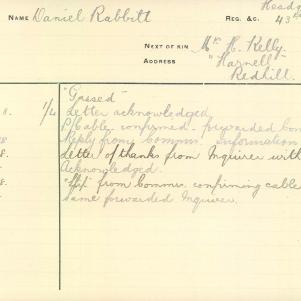 Headq
NAME Daniel Rabbitt REG. &C. 43
NEXT OF KIN Mr. H. Kelly.
ADDRESS "Harnell"
Redhill.
"Gassed"
8. 1/4 Letter acknowledged.
P/Cable confirmed - forwarded
18 Reply from Commr. Information
8. Letter of thanks from Inquirer with
Acknowledged.
8. from Commr. confirming cable
Same forwarded Inquirer.